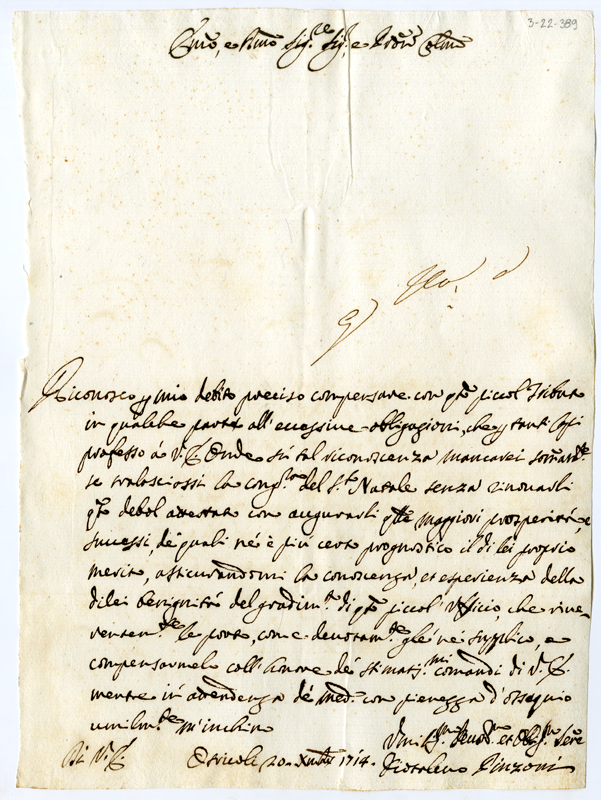 3-22-389
Sig.re Sig.r, e
Riconosco p mio debito preciso compensare con q.to piccol Tributo
in qualche parte all'eccessive obligazioni, che p tanti Capi
professo á V. Onde su tal riconoscenza mancarei
se tralasciassi la cong.ra del S.to Natale senza rinovarli
q.to debol attestato con augurarli q.lle maggiori prosperitá, e
successi, de quali né è piú certo prognostico il di lei proprio
merito, assicurandomi la conoscenza, et esperienza della
di lei benignitá del gradim.to di q.to piccol' Ufficio, che rive-
rentem.te le porto, come devotam.te glé né supplico, e
compensarmelo coll'honore de stimatiss.mi comandi di V.
mentre in attendenza de med.mi con pienezza d'ossequio
umilm.te m'inchino
Di V.
Otricoli 20 Xmbre 1714.
Pinzoni